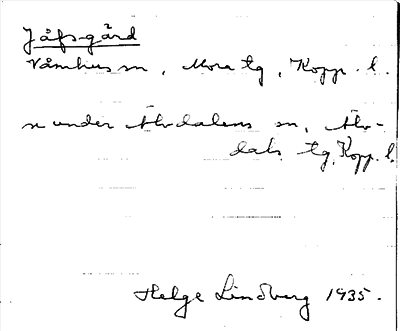 Jåfsgård
Våmhus sn, Mora tg, Kopp. l.
se under Älvdalens sn, Älv-
dals tg, Kopp. l.
Helge Lindberg 1935.